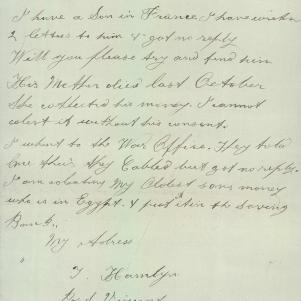 I have a Son in France, I have written
2 letters to him & got no reply
Will you please try and find him
His Mother died last October
She collected his money. I cannot
colect it without his consent.
I went to the War Office. They told
me they Cabled but got no reply.
I am colecting My Oldest sons money
who is in Egypt. & put it in the Saving
Bank.
My Adress
T. Hamlyn